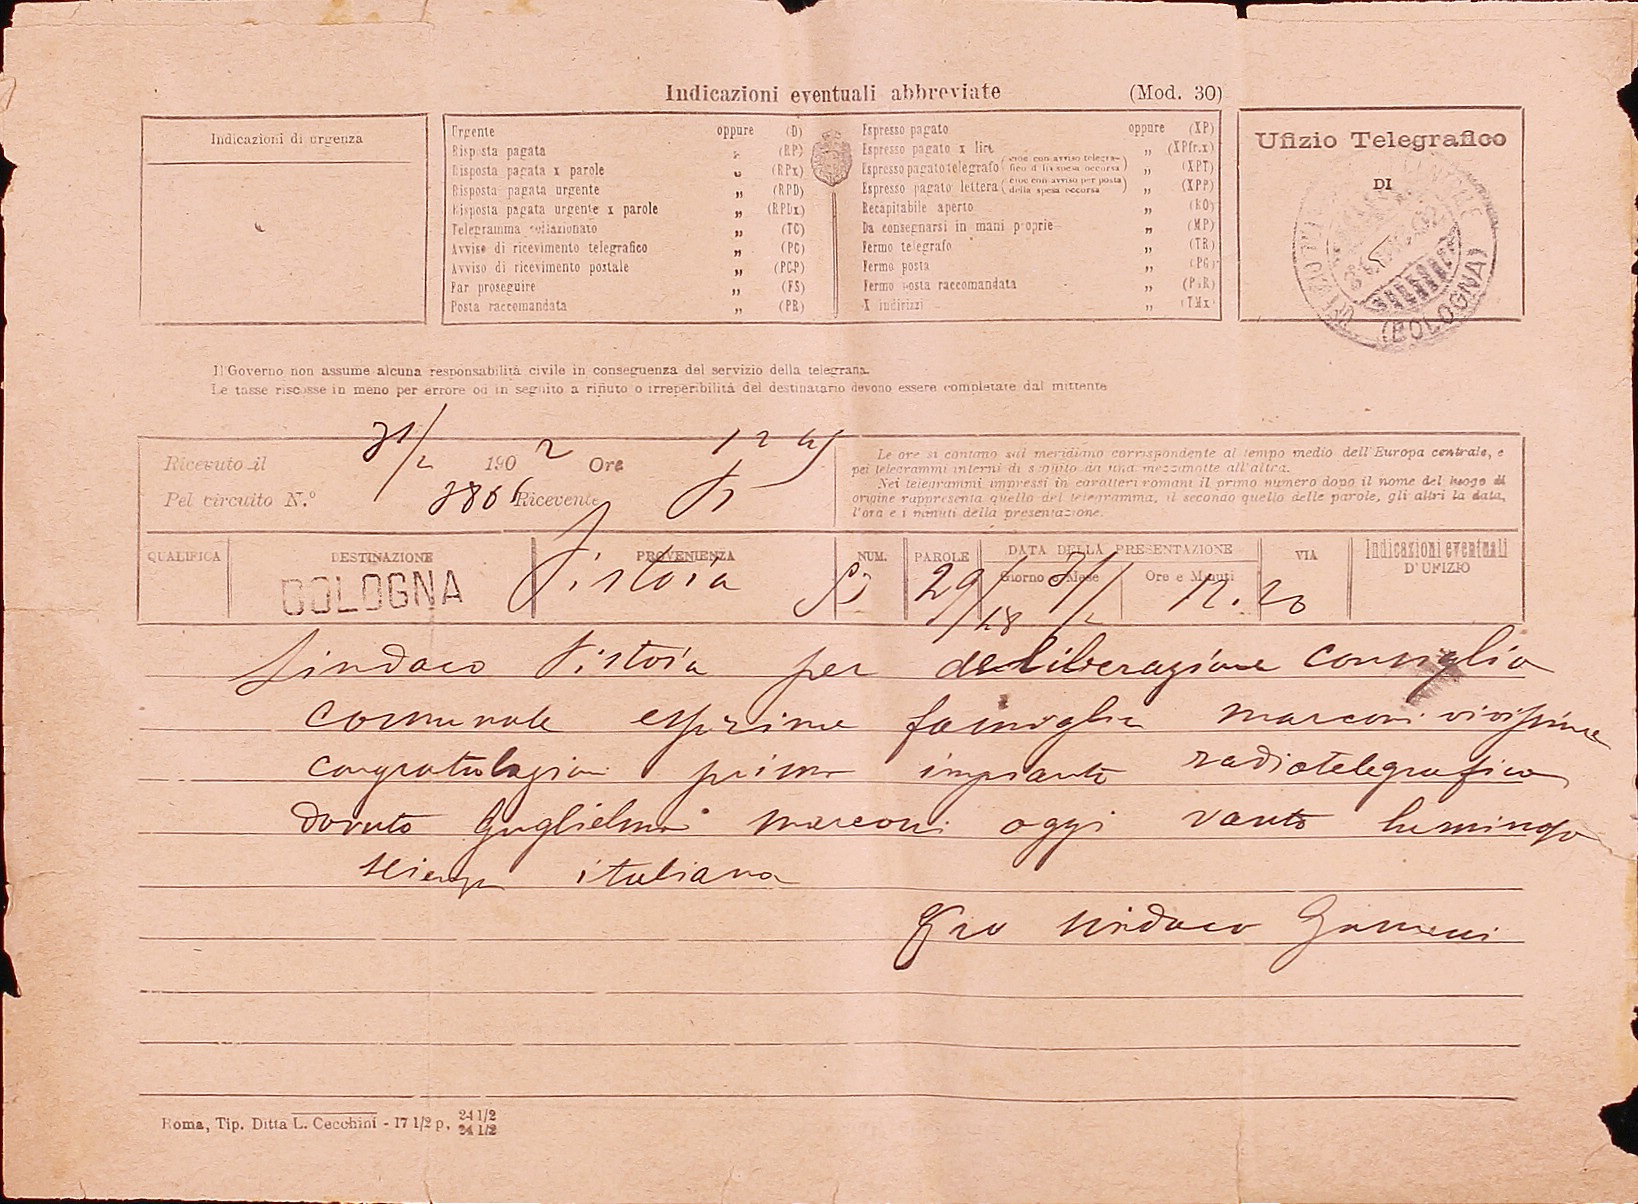 Indicazioni eventuali abbreviate (Mod. 30)
Indicazioni di urgenza
Urgente oppure (D)
Risposta pagata „ (RP)
Risposta pagata x parole „ (RPx)
Risposta pagata urgente „ (RPD)
Risposta pagata urgente x parole „ (RPDx)
Telegramma collazionato „ (TC)
Avviso di ricevimento telegrafico „ (PC)
Avviso di ricevimento postale „ (PCP)
Far proseguire „ (FS)
Posta raccomandata „ (PR)
Espresso pagato oppure (XP)
Espresso pagato x lire „ (XPfr.x)
Espresso pagato telegrafo (cioè con avviso telegra-fico d lla spesa occorsa) „ (XPT)
Espresso pagato lettera (cioè con avviso per posta della spesa occorsa) „ (XPP)
Recapitabile aperto „ (RO)
Da consegnarsi in mani proprie „ (MP)
Fermo telegrafo „ (TR)
Fermo posta „ (PG)
Fermo posta raccomandata „ (PGR)
X indirizzi „ (TMx)
Ufizio Telegrafico
DI
(BOLOGNA)
Il Governo non assume alcuna responsabilità civile in conseguenza del servizio della telegrafia.
Le tasse riscosse in meno per errore od in seguito a rifiuto o irreperibilità del destinatario devono essere completate dal mittente
Ricevuto il 31/12 1902 Ore 12 45
Pel circuito N.° Ricevente
Le ore si contano sul meridiano corrispondente al tempo medio dell'Europa centrale, e
pei telegrammi interni di seguito da una mezzanotte all'altra.
Nei telegrammi impressi in caratteri romani il primo numero dopo il nome del luogo di
origine rappresenta quello del telegramma, il secondo quello delle parole, gli altri la data,
l'ora e i minuti della presentazione.
QUALIFICA DESTINAZIONE PROVENIENZA NUM. PAROLE DATA DELLA PRESENTAZIONE VIA Indicazioni eventuali D'UFIZIO
Giorno e Mese Ore e Minuti
BOLOGNA Pistoia 29/28 31/12 12.20
Sindaco Pistoia per deliberazione consiglio
comunale esprime famiglia Marconi vivissime
congratulazioni primo impianto radiotelegrafico
dovuto Guglielmo Marconi oggi vanto
scienza italiana
Pro sindaco
Roma, Tip. Ditta L. Cecchini - 17 1/2 p, 24 1/2
24 1/2